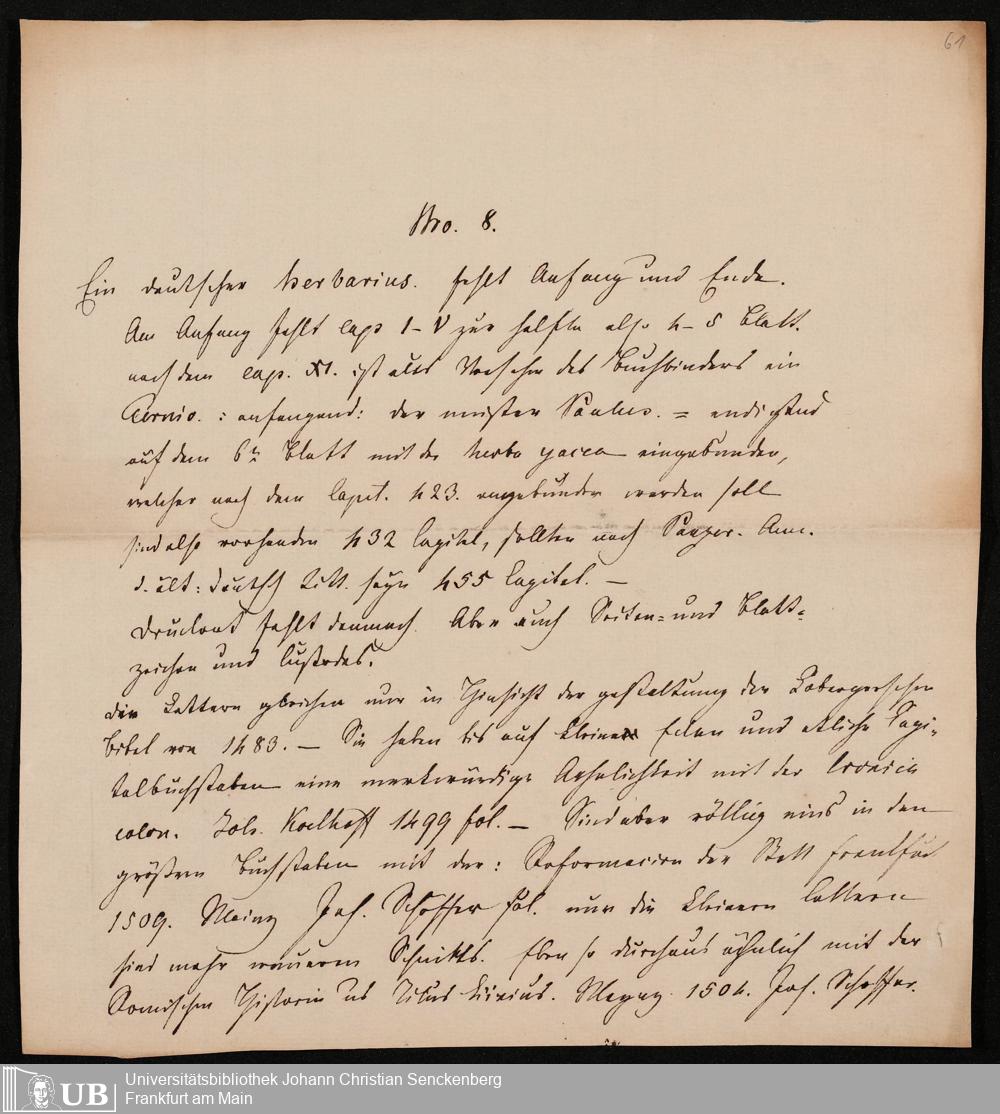 61
Nro. 8.
Ein deutscher Herbarius. fehlt Anfang und Ende.
Am Anfang fehlt cap I-V zur helfte also 4-5 Blatt.
nach dem cap. XI. ist aus Versehen des Buchbinders ein
: anfangend: der meister = endigend
auf dem 6n Blatt mit der herba yacea eingebunden,
welcher nach dem Capit. 423. eingebunden werden soll
sind also vorhanden 432 Capitel, sollten nach Panzer. Ann.
d. ält: deutsch Litt. seyn 455 Capitel. —
Druckort fehlt demnach. Aber auch Seiten- und Blatt-
zeichen und Custodes.
die Lettern gleichen nur in Hinsicht der gestaltung der Kobergerschen
Bibel von 1483. — Sie haben bis auf kleine Ecken und etliche Capi-
talbuchstaben eine merkwürdige Aehnlichkeit mit der Cronica
colon. Joh. Koelhoff 1499 fol. — Sind aber völlig eins in den
größern Buchstaben mit der: Reformacion der Statt franckfurt
1509. Mainz Joh. Schöffer fol. nur die kleinern Lettern
sind mehr neuern Schnitts. Eben so durchaus ähnlich mit der
Romischen Historie us Titus Livius. Menz 1505. Joh. Schoffer.
UB
Universitätsbibliothek Johann Christian Senckenberg
Frankfurt am Main